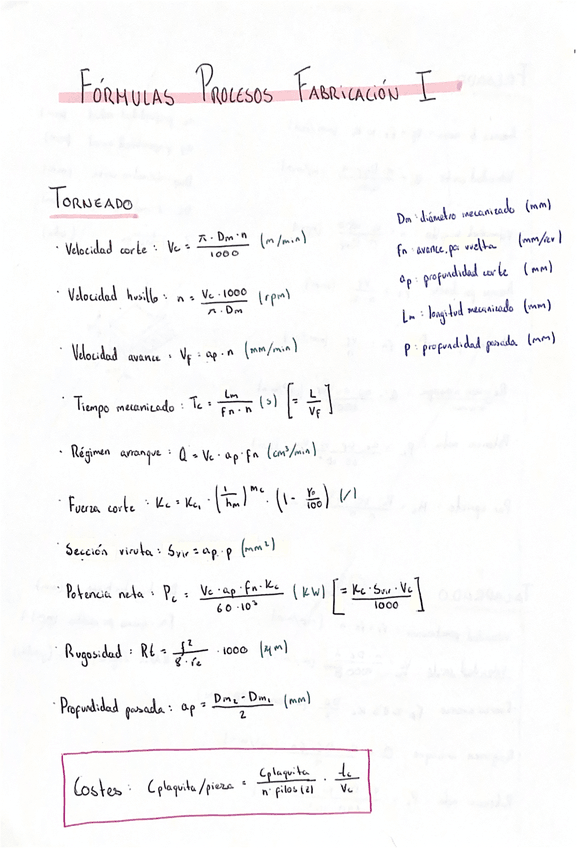 FÓRMULAS PROCESOS FABRICACIÓN I
TORNEADO
· Velocidad corte : Vc = π · Dm · n / 1000 (m/min)
· Velocidad husillo : n = Vc · 1000 / π · Dm (rpm)
· Velocidad avance : Vf = ap · n (mm/min)
· Tiempo mecanizado : Tc = Lm / fn · n (s) [= L / Vf]
· Régimen arranque : Q = Vc · ap · fn (cm³/min)
· Fuerza corte : Kc = Kc1 · (1 / hm)^mc · (1 - γo / 100) (/)
· Sección viruta : Svir = ap · p (mm²)
· Potencia neta : Pc = Vc · ap · fn · Kc / 60 · 10³ (KW) [= Kc · Svir · Vc / 1000]
· Rugosidad : Rt = f² / 8 · rε · 1000 (μm)
· Profundidad pasada : ap = Dm2 - Dm1 / 2 (mm)
Costes : Cplaquita/pieza = Cplaquita / nº filos (2) · tc / Vc
Dm : diámetro mecanizado (mm)
fn : avance por vuelta (mm/rev)
ap : profundidad corte (mm)
Lm : longitud mecanizado (mm)
p : profundidad pasada (mm)